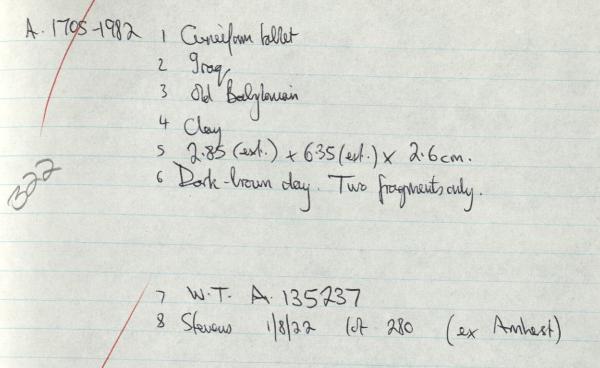 A. 1705-1982 1 Cuneiform tablet
2 Iraq
3 Old Babylonian
4 Clay
5 2.85 (est.) x 6.35 (est.) x 2.6cm.
6 Dark-brown clay. Two fragments only.
322
7 W.T. A. 135237
8 Stevens 1/8/22 lot 280 (ex Amherst)